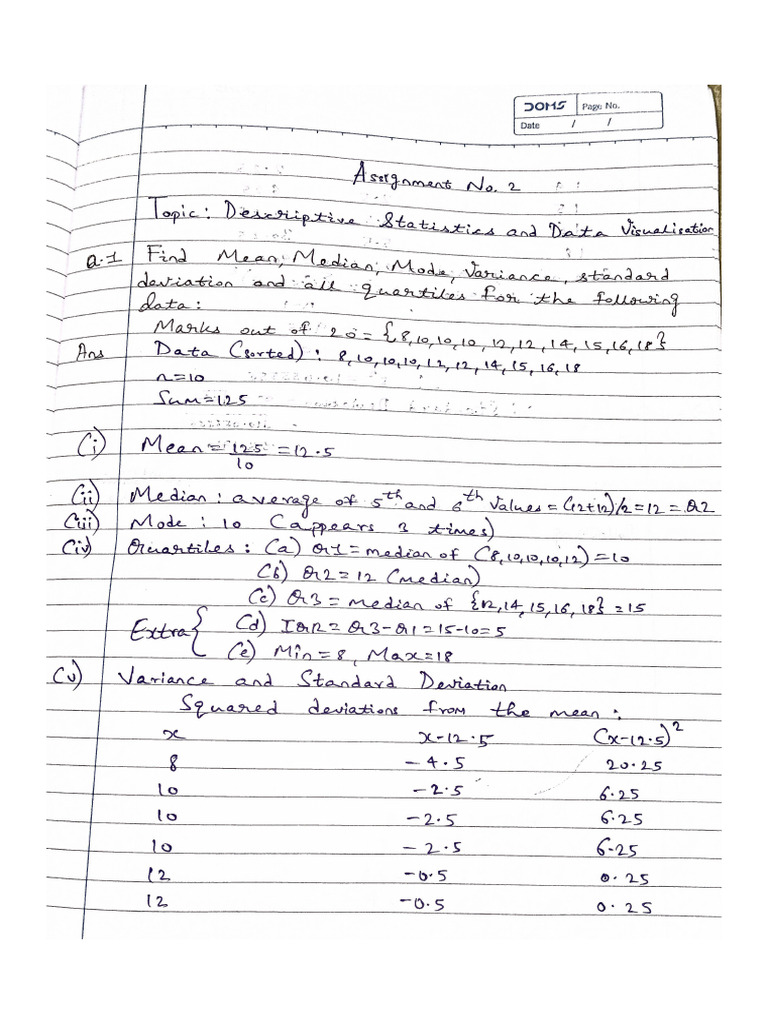 DOMS Page No.
Date / /
Assignment No. 2
Topic: Descriptive Statistics and Data Visualisation
Q.1 Find Mean, Median, Mode, Variance, standard
deviation and all quartiles for the following
data:
Marks out of 20 = {8,10,10,10,12,12,14,15,16,18}
Ans Data (sorted): 8,10,10,10,12,12,14,15,16,18
n=10
Sum=125
(i) Mean = 125/10 = 12.5
(ii) Median: average of 5th and 6th values = (12+12)/2 = 12 = Q2
(iii) Mode: 10 (appears 3 times)
(iv) Quartiles: (a) Q1 = median of (8,10,10,10,12) = 10
(b) Q2 = 12 (median)
(c) Q3 = median of {12,14,15,16,18} = 15
Extra { (d) IQR = Q3-Q1 = 15-10 = 5
(e) Min = 8, Max = 18
(v) Variance and Standard Deviation
Squared deviations from the mean:
x x-12.5 (x-12.5)²
8 -4.5 20.25
10 -2.5 6.25
10 -2.5 6.25
10 -2.5 6.25
12 -0.5 0.25
12 -0.5 0.25